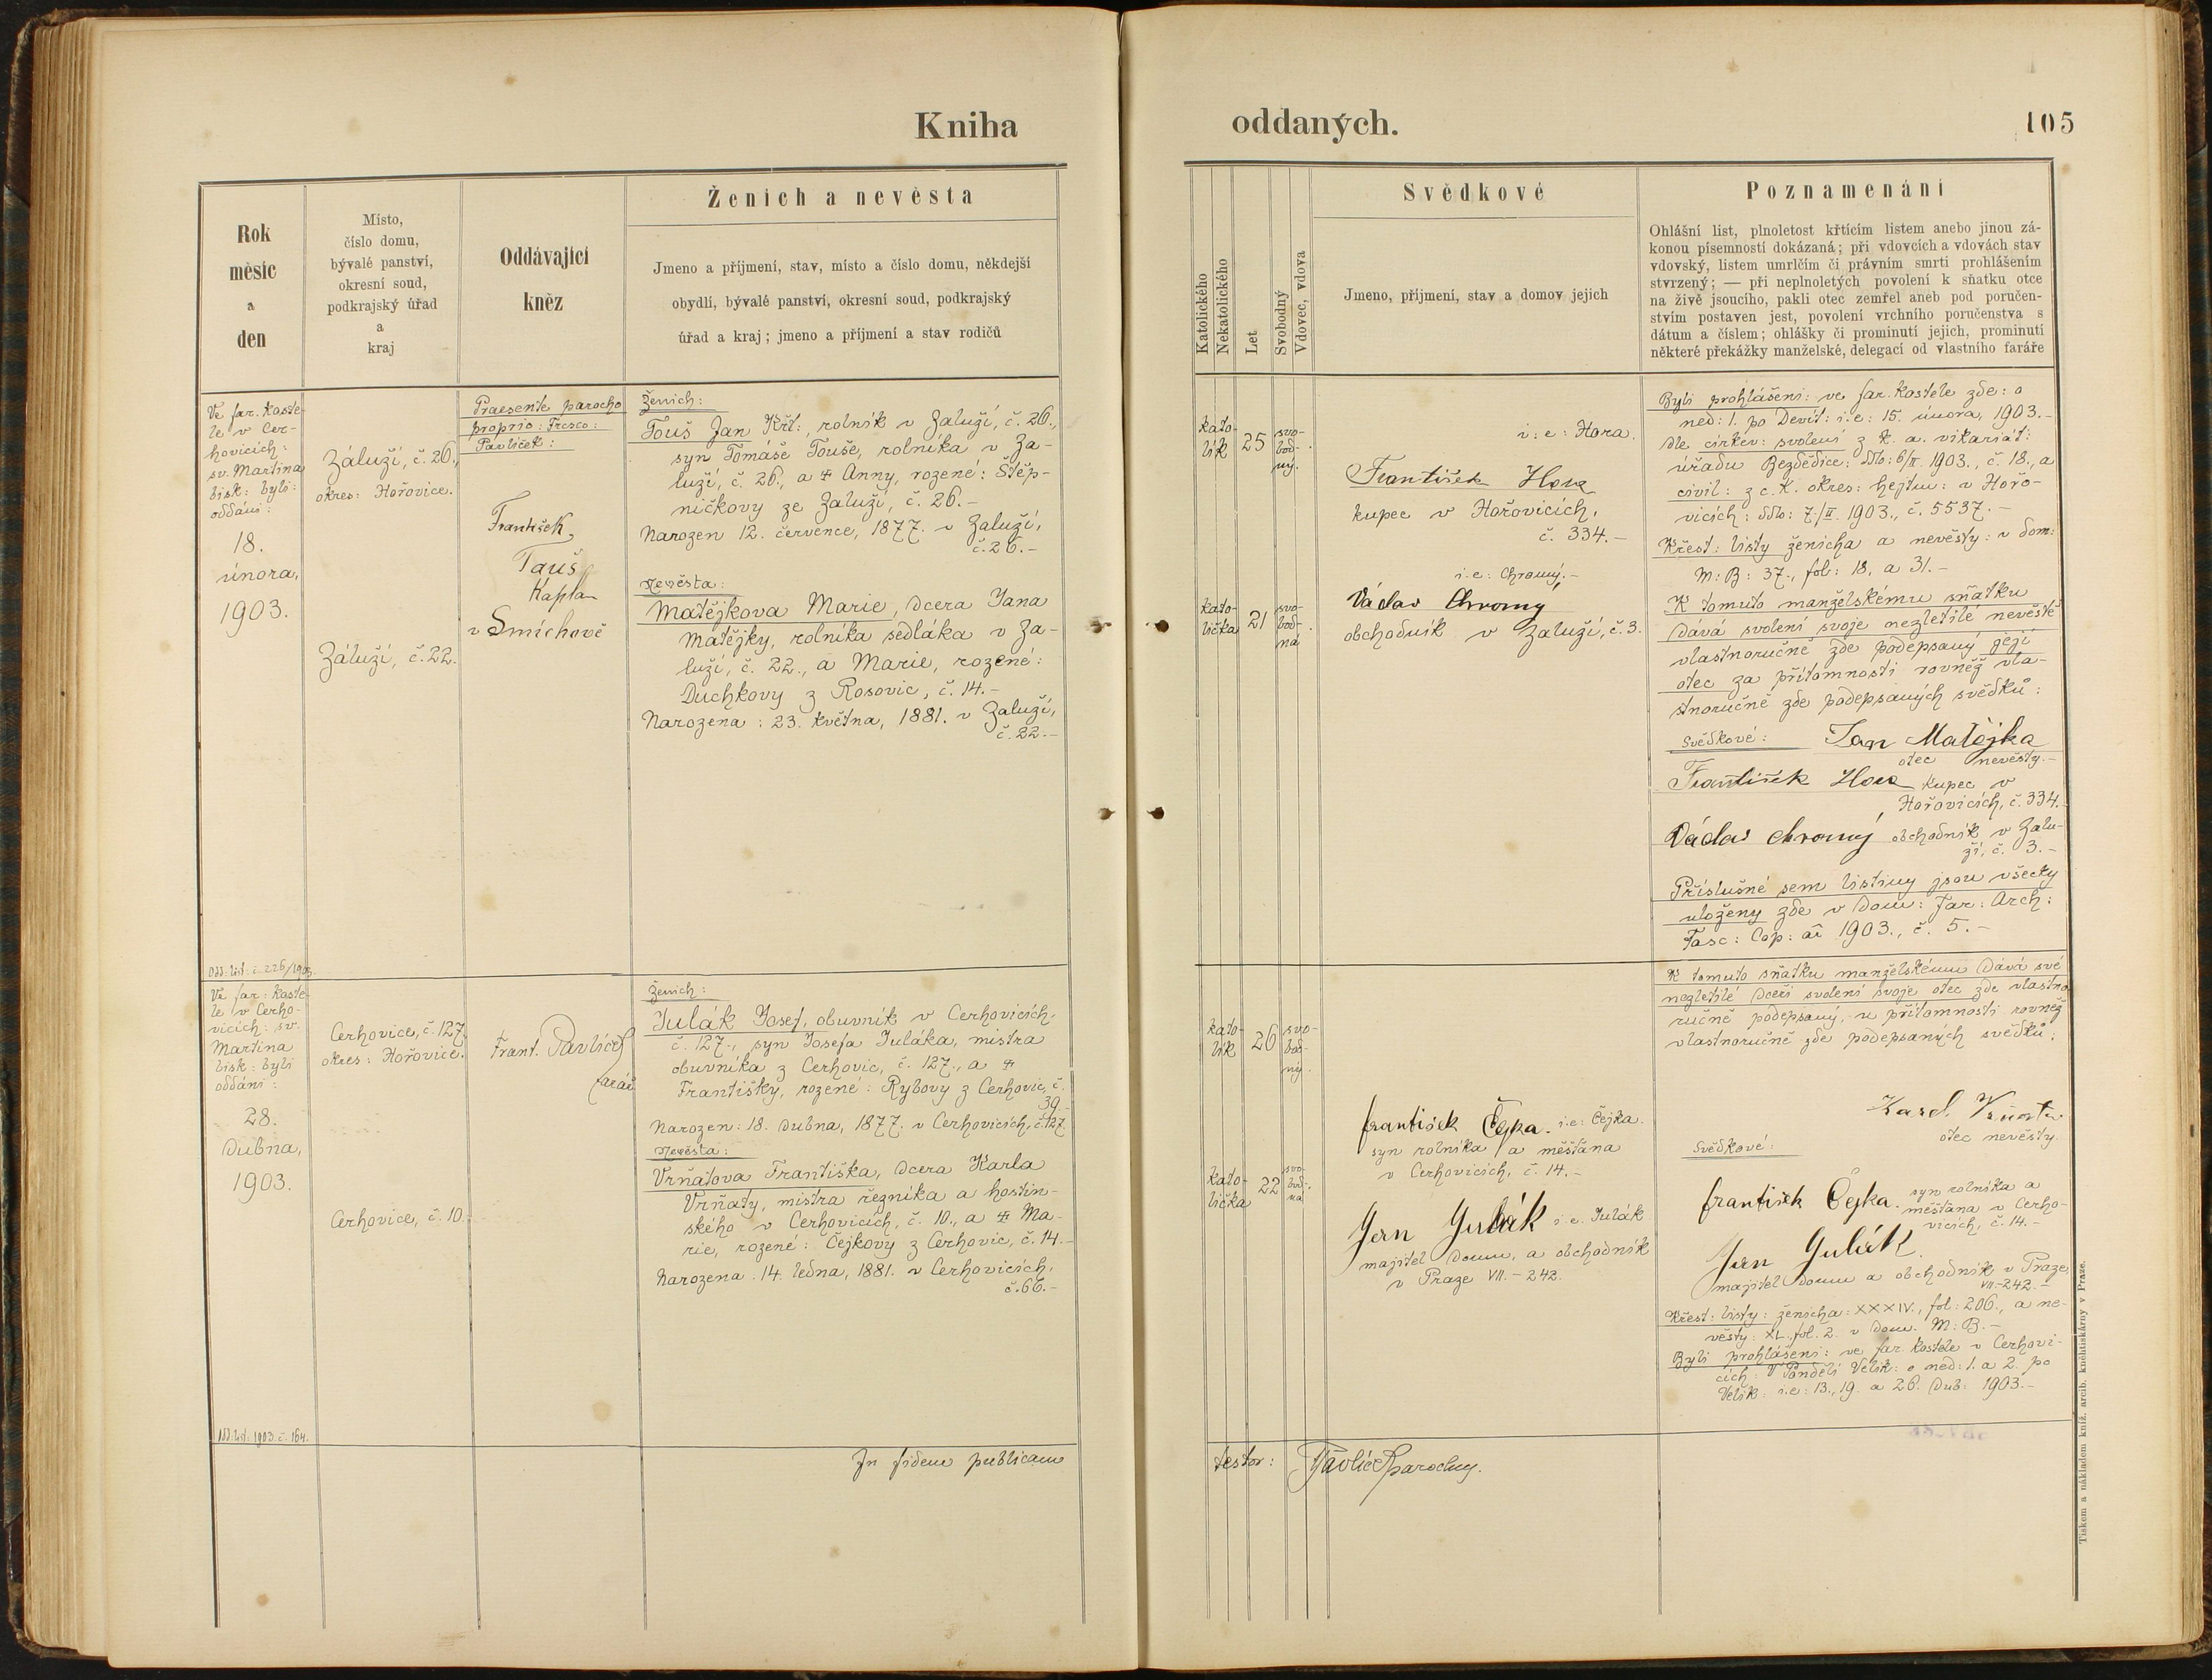 Kniha
oddaných.
105
Rok
měsíc
a
den
Místo,
číslo domu,
bývalé panství,
okresní soud,
podkrajský úřad
a
kraj
Oddávající
kněz
Ženich a nevěsta
Jmeno a příjmení, stav, místo a číslo domu, někdejší
obydlí, bývalé panství, okresní soud, podkrajský
úřad a kraj; jmeno a příjmení a stav rodičů
Katolického
Nekatolického
Let
Svobodný
Vdovec, vdova
Svědkové
Jmeno, příjmení, stav a domov jejich
Poznamenání
Ohlášní list, plnoletost křtícím listem anebo jinou zá-
konou písemností dokázaná; při vdovcích a vdovách stav
vdovský, listem umrlčím či právním smrti prohlášením
stvrzený; — při neplnoletých povolení k sňatku otce
na živě jsoucího, pakli otec zemřel aneb pod poručen-
stvím postaven jest, povolení vrchního poručenstva s
dátum a číslem; ohlášky či prominutí jejich, prominutí
některé překážky manželské, delegací od vlastního faráře
Ve far. koste-
le v Cer-
hovicích:
sv. Martina
bisk: byli:
oddáni:
18.
února,
1903.
Odd: list: č. 226/1903.
Záluží, č. 26.,
okres: Hořovice.
Záluží, č. 22.
Praesente parocho
proprio: Fresco:
Pavlíček:
František
Tauš
Kaplan
v Smíchově
Ženich:
Touš Jan Křt:, rolník v Zaluží, č. 26.,
syn Tomáše Touše, rolníka v Za-
luží, č. 26., a ‡ Anny, rozené: Štěp-
ničkovy ze Zaluží, č. 26.-
Narozen 12. července, 1877. v Zaluží,
č. 26.-
Nevěsta:
Matějkova Marie, dcera Jana
Matějky, rolníka sedláka v Za-
luží, č. 22., a Marie, rozené:
Duchkovy z Rosovic, č. 14.-
Narozena: 23. května, 1881. v Zaluží,
č. 22.-
kato-
lík
25
svo-
bod-
ný.
kato-
lička
21
svo-
bod-
ná
i: e: Hora.
František Hora
kupec v Hořovicích,
č. 334.-
i.e: Chromý.-
Václav Chromý
obchodník v Zaluží, č. 3.
Byli prohlášeni: ve far. kostele zde: o
ned: 1. po Devít: i:e: 15. února, 1903.-
dle církev: svolení z k. a. vikariát:
úřadu Bezdědice: ddto: 6/II. 1903., č. 18., a
civil: z c. k. okres: hejtm: v Hořo-
vicích: ddto: 7./II. 1903., č. 5537.-
Křest: listy ženicha a nevěsty: v dom:
M: B: 37., fol: 18. a 31.-
K tomuto manželskému sňatku
dává svolení svoje nezletilé nevěstě
vlastnoručně zde podepsaný její
otec za přítomnosti rovněž vla-
stnoručně zde podepsaných svědků:
Svědkové: Jan Matějka
otec nevěsty.-
František Hora kupec v
Hořovicích, č. 334.
Václav Chromý obchodník v Zalu-
ží, č. 3.-
Příslušné sem listiny jsou všecky
uloženy zde v Dom: Far: Arch:
Fasc: Cop: aí 1903., č. 5.-
Ve far: koste-
le v Cerho-
vicích: sv.
Martina
bisk: byli
oddáni:
28.
dubna,
1903.
Odd: list: 1903. č. 164.
Cerhovice, č. 127.
okres: Hořovice.
Cerhovice, č. 10.
Frant. Pavlíček
farář
Ženich:
Julák Josef, obuvník v Cerhovicích,
č. 127., syn Josefa Juláka, mistra
obuvníka z Cerhovic, č. 127., a ‡
Františky, rozené: Rybovy z Cerhovic, č.
39.-
Narozen: 18. dubna, 1877. v Cerhovicích, č. 127
Nevěsta:
Vrňatova Františka, dcera Karla
Vrňaty, mistra řezníka a hostin-
ského v Cerhovicích, č. 10., a ‡ Ma-
rie, rozené: Čejkovy z Cerhovic, č. 14.-
Narozena: 14. ledna, 1881. v Cerhovicích,
č. 66.-
kato-
lík
26
svo-
bod-
ný.
kato-
lička
22
svo-
bod-
ná
František Čejka. i:e: Čejka.
syn rolníka a měšťana
v Cerhovicích, č. 14.-
Jan Julák i. e. Julák
majitel domu, a obchodník
v Praze VII.-242.
K tomuto sňatku manželskému dává své
nezletilé dceři svolení svoje otec zde vlastno-
ručně podepsaný, u přítomnosti rovněž
vlastnoručně zde podepsaných svědků:
Karel Vrňata
otec nevěsty.
Svědkové:
František Čejka. syn rolníka a
měšťana v Cerho-
vicích, č. 14.-
Jan Julák.
majitel domu a obchodník v Praze,
VII.-242.-
Křest: listy: ženicha: XXXIV., fol: 206., a ne-
věsty: XL., fol. 2. v Dom. M: B.-
Byli prohlášeni: ve far. kostele v Cerhovi-
cích: V Pondělí Velik: o ned: 1. a 2. po
Velik: i.e: 13., 19. a 26. dub: 1903.-
In fidem publicam
testor: Pavlíček parochus.
Tiskem a nákladem kníž. arcib. knihtiskárny v Praze.